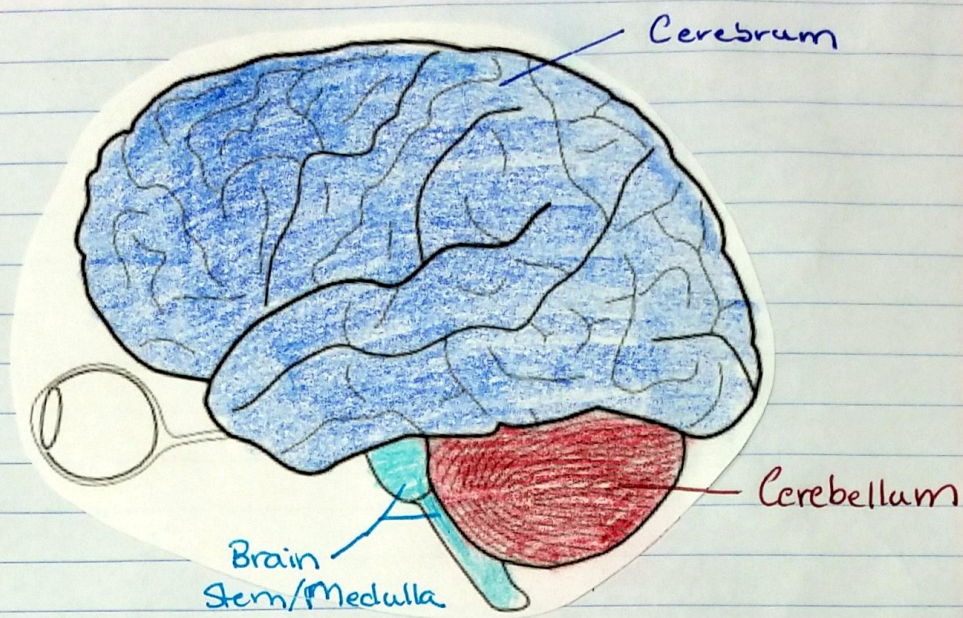 Cerebrum
Cerebellum
Brain
Stem/Medulla